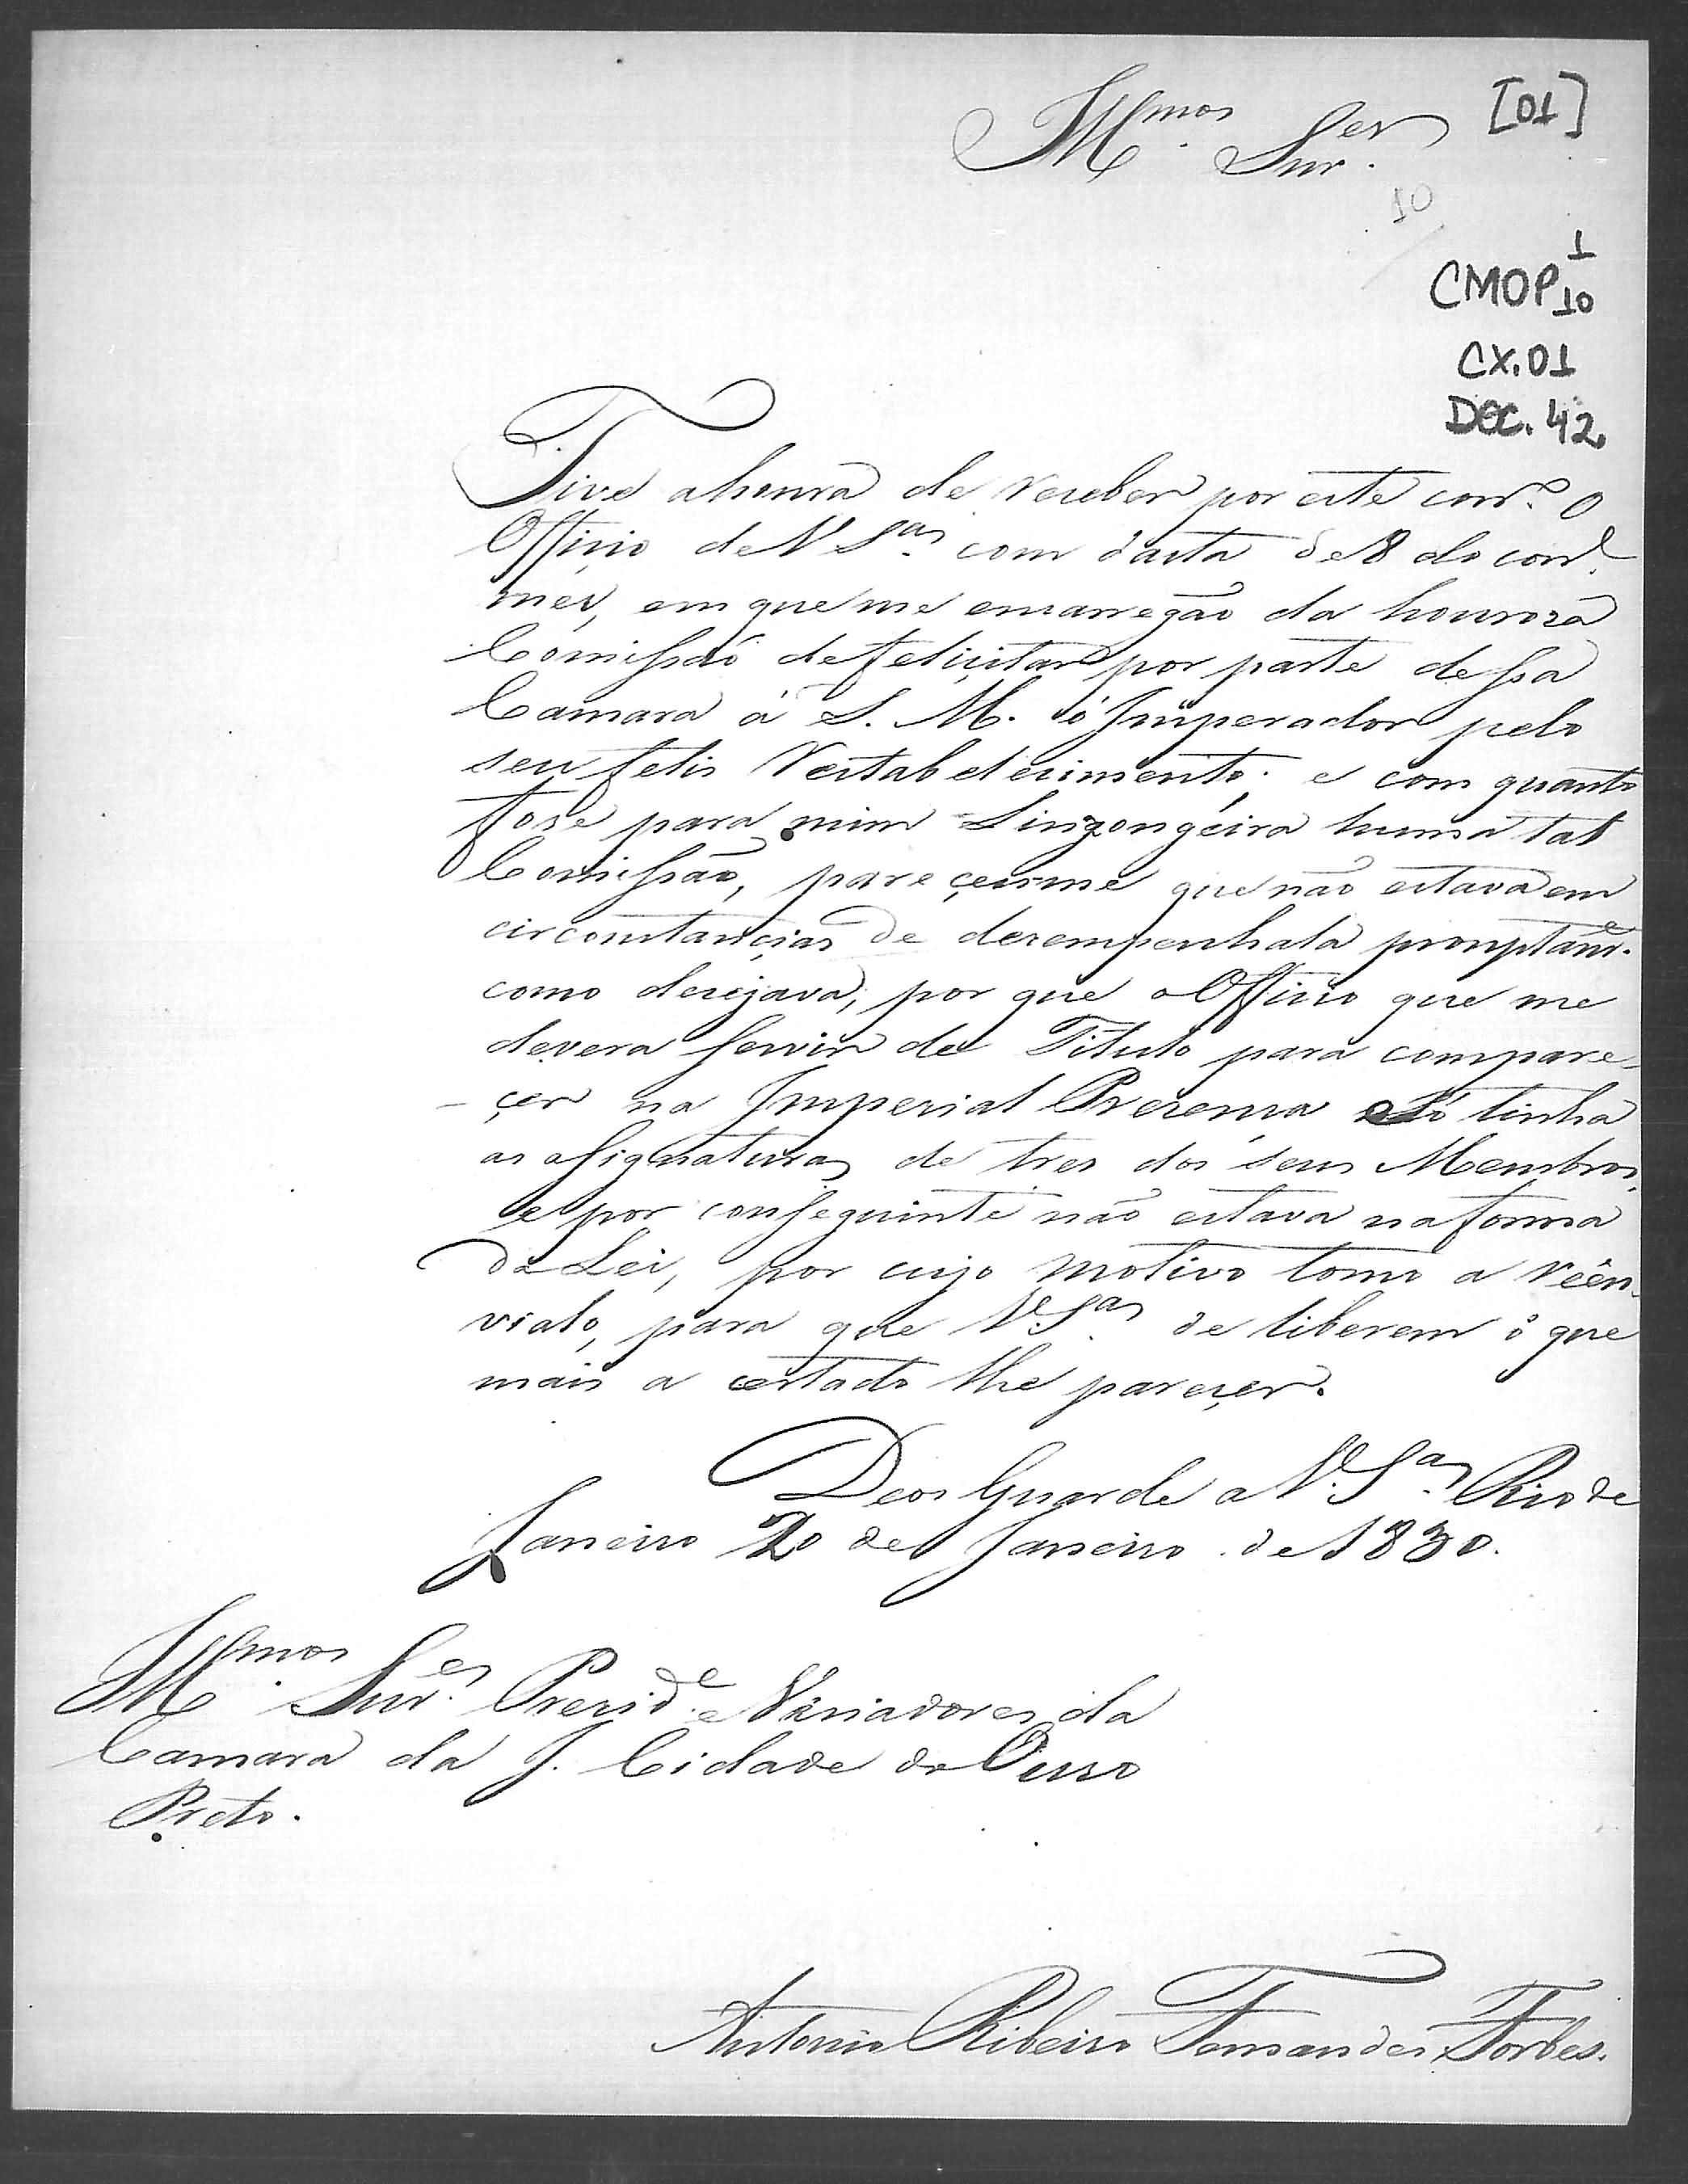 Illmos Snres
[01]
10
1
CMOP 10
CX.01
DOC. 42
Tive a honra de receber por este corro. o
Officio de V Sas com data de 8 do corre.
mes, em que me encarregão da honroza
Comissaõ de feliçitar por parte dessa
Camara á S. M. o Imperador pelo
seu felis Restabelecimento; e com quanto
fose para mim Linzongeira huma tal
Comissão, pareçeume que não estava em
circonstançias de dezempenhala promptame.
como dezejava, por que o Officio que me
devera servir de Titulo para compare-
-çer na Imperial Prezença só tinha
as asignaturas de tres dos seus Membros,
e por conseguinte não estava na forma
da Lei, por cujo motivo torno a reen-
vialo, para que V.Sas deliberem o que
mais a certado lhe pareçer.
Deos Guarde a V.Sas Rio de
Janeiro 20 de Janeiro de 1830.
Illmos Snres Prezide e Variadores da
Camara da I. Cidade do Ouro
Preto.
Antonio Ribeiro Fernandes Forbes.